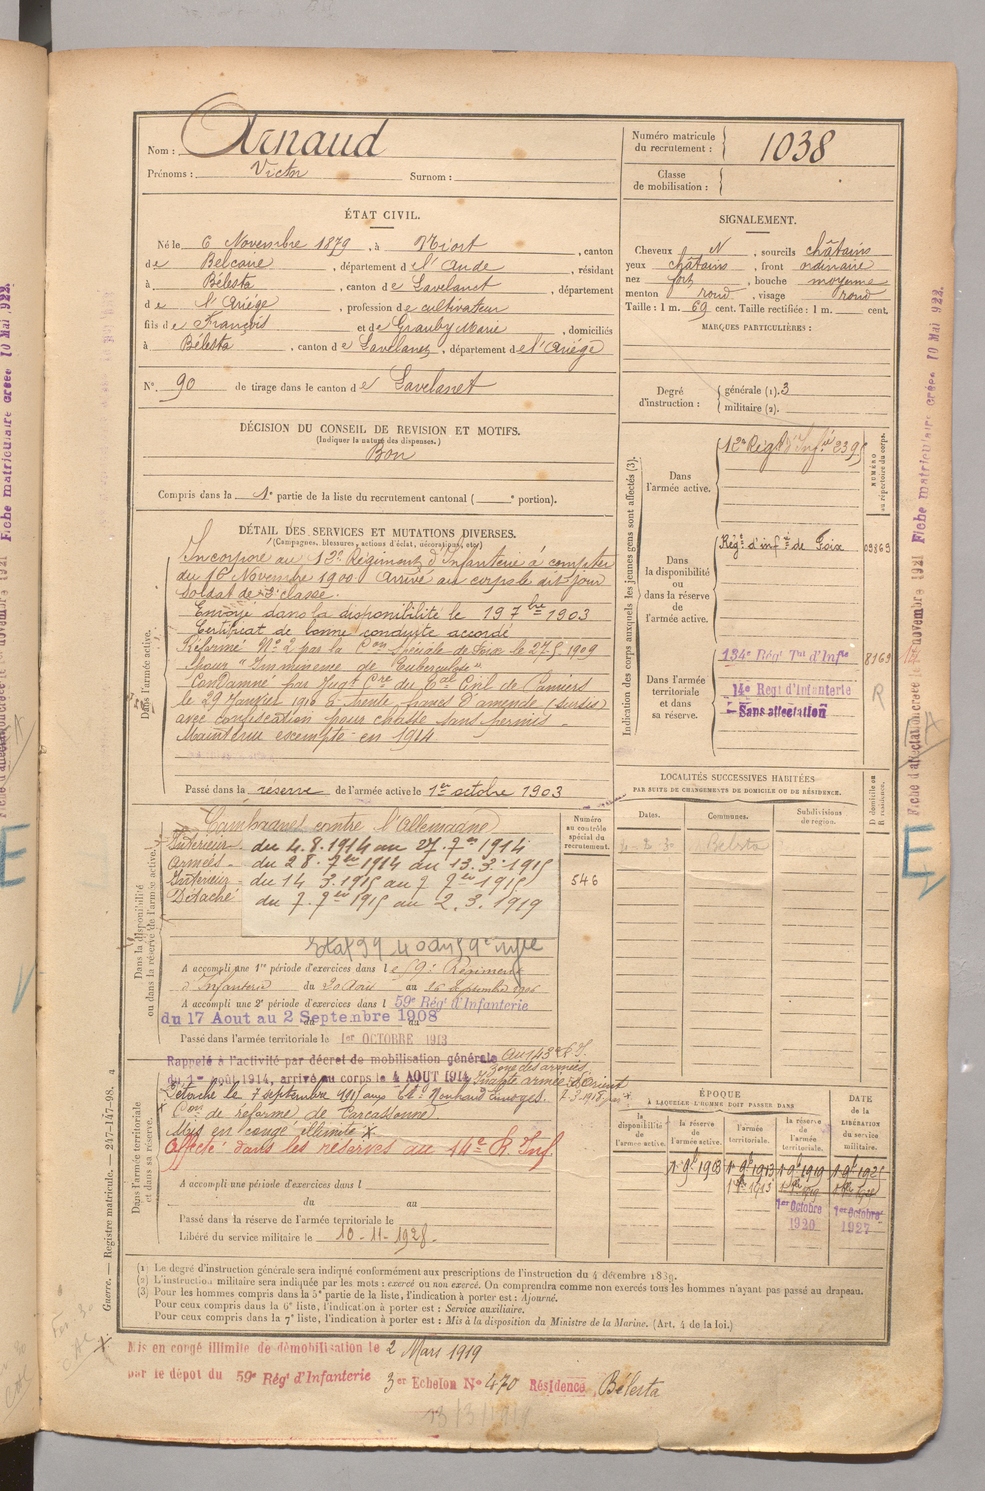 Nom : Arnaud
Prénoms : Victor Surnom :
Numéro matricule du recrutement : 1038
Classe de mobilisation :
ÉTAT CIVIL.
Né le 6 Novembre 1879, à Niort, canton
de Belcaire, département de l'Aude, résidant
à Bélesta, canton de Lavelanet, département
de l'Ariège, profession de cultivateur
fils de François et de Grauby Marie, domiciliés
à Bélesta, canton de Lavelanet, département de l'Ariège
N°. 90 de tirage dans le canton de Lavelanet
SIGNALEMENT.
Cheveux N, sourcils châtains
yeux châtains, front ordinaire
nez fort, bouche moyenne
menton rond, visage rond
Taille : 1 m. 69 cent. Taille rectifiée : 1 m. cent.
MARQUES PARTICULIÈRES :
Degré d'instruction : générale (1). 3
militaire (2).
DÉCISION DU CONSEIL DE REVISION ET MOTIFS.
(Indiquer la nature des dispenses.)
Bon
Compris dans la 1e partie de la liste du recrutement cantonal ( e portion).
DÉTAIL DES SERVICES ET MUTATIONS DIVERSES.
(Campagnes, blessures, actions d'éclat, décorations, etc.)
Dans l'armée active.
Incorporé au 12e Régiment d'Infanterie à compter
du 16 Novembre 1900. Arrivé au corps le dit jour
soldat de 2e classe.
Envoyé dans la disponibilité le 19 7bre 1903
Certificat de bonne conduite accordé
Réformé N° 2 par la Con Spéciale de Foix le 27 5 1909
Pour "Imminence de Tuberculose"
Condamné par Jugt Cre du Tal Civil de Pamiers
le 29 Janvier 1910 à trente francs d'amende (sursis)
avec confiscation pour chasse sans permis
Maintenu exempté en 1914
Passé dans la réserve de l'armée active le 1er octobre 1903
Indication des corps auxquels les jeunes gens sont affectés (3).
NUMÉRO au répertoire du corps.
Dans l'armée active.
12e Régt d'Infie 2395
Dans la disponibilité ou dans la réserve de l'armée active.
Régt d'infie de Foix 09869
Dans l'armée territoriale et dans sa réserve.
134e Régt Tal d'Infie 8169
14e Regt d'Infanterie
Sans affectation
R
LOCALITÉS SUCCESSIVES HABITÉES
PAR SUITE DE CHANGEMENTS DE DOMICILE OU DE RÉSIDENCE.
Dates. Communes. Subdivisions de région. D domicile ou R résidence.
Bélesta
Dans la disponibilité ou dans la réserve de l'armée active.
Campagnes contre l'Allemagne
Intérieur du 4.8.1914 au 27.7bre 1914
Armées du 28.7bre 1914 au 13.3.1915
Intérieur du 14 3.1915 au 7 7bre 1915
Détaché du 7.7bre 1915 au 2.3.1919
Numéro au contrôle spécial du recrutement.
546
A accompli une 1re période d'exercices dans le 59e Régiment
d'Infanterie du 20 Août au 16 Septembre 1906
A accompli une 2e période d'exercices dans l 59e Régt d'Infanterie
du 17 Aout au 2 Septembre 1908
Passé dans l'armée territoriale le 1er OCTOBRE 1913
Dans l'armée territoriale et dans sa réserve.
Rappelé à l'activité par décret de mobilisation générale
du 1er août 1914, arrivé au corps le 4 AOUT 1914
Au 143e R.I.
zone des armées
Inapte armée d'Orient
Détaché le 7 septembre 1915 aux Limoges.
Con de réforme de Carcassonne
Mis en congé illimité X
Affecté dans les réserves au 14e R. Inf.
A accompli une période d'exercices dans l
du au
Passé dans la réserve de l'armée territoriale le
Libéré du service militaire le 10-11-1928.
ÉPOQUE
À LAQUELLE L'HOMME DOIT PASSER DANS
la disponibilité de l'armée active. la réserve de l'armée active. l'armée territoriale. la réserve de l'armée territoriale.
DATE de la LIBÉRATION du service militaire.
1er Octobre 1920
1er Octobre 1927
(1) Le degré d'instruction générale sera indiqué conformément aux prescriptions de l'instruction du 4 décembre 1889.
(2) L'instruction militaire sera indiquée par les mots : exercé ou non exercé. On comprendra comme non exercés tous les hommes n'ayant pas passé au drapeau.
(3) Pour les hommes compris dans la 5e partie de la liste, l'indication à porter est : Ajourné.
Pour ceux compris dans la 6e liste, l'indication à porter est : Service auxiliaire.
Pour ceux compris dans la 7e liste, l'indication à porter est : Mis à la disposition du Ministre de la Marine. (Art. 4 de la loi.)
X Mis en congé illimité de démobilisation le 2 Mars 1919
par le dépot du 59e Régt d'Infanterie 3er Echelon N° 470 Résidence Bélesta
Guerre. — Registre matricule. — 247-147-98.
Fiche matriculaire créée 10 Mai 922.
Fiche d'affectation créée le novembre 1921
E